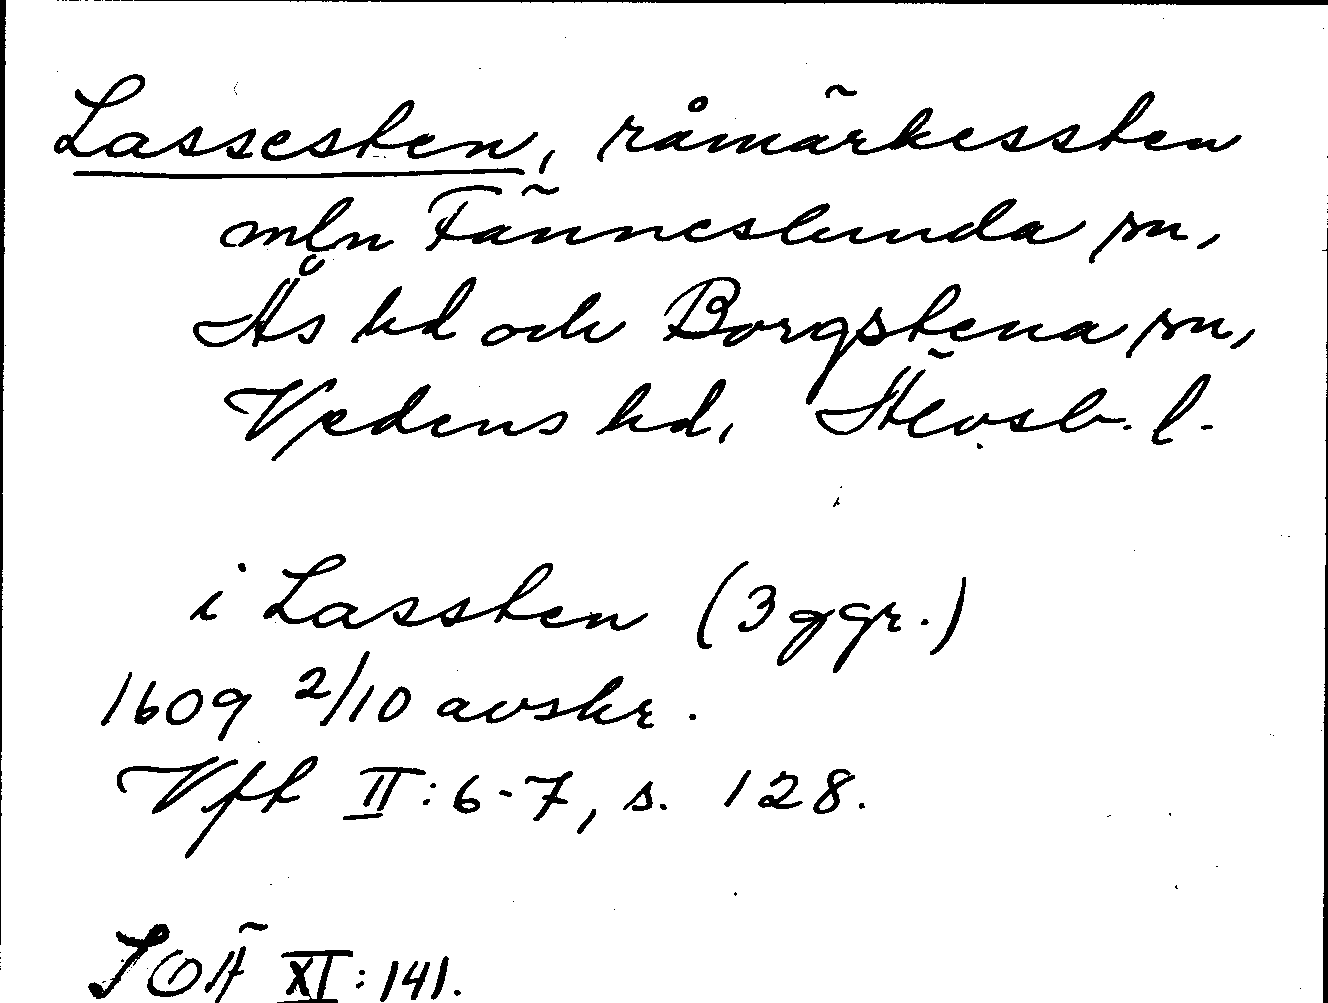 Lassesten, råmärkessten
mln Fänneslunda sn,
Ås hd och Borgstena sn,
Vedens hd, Älvsb. l.
i Lassten (3 ggr.)
1609 2/10 avskr.
Vft II:6-7, s. 128.
SOÄ XI:141.